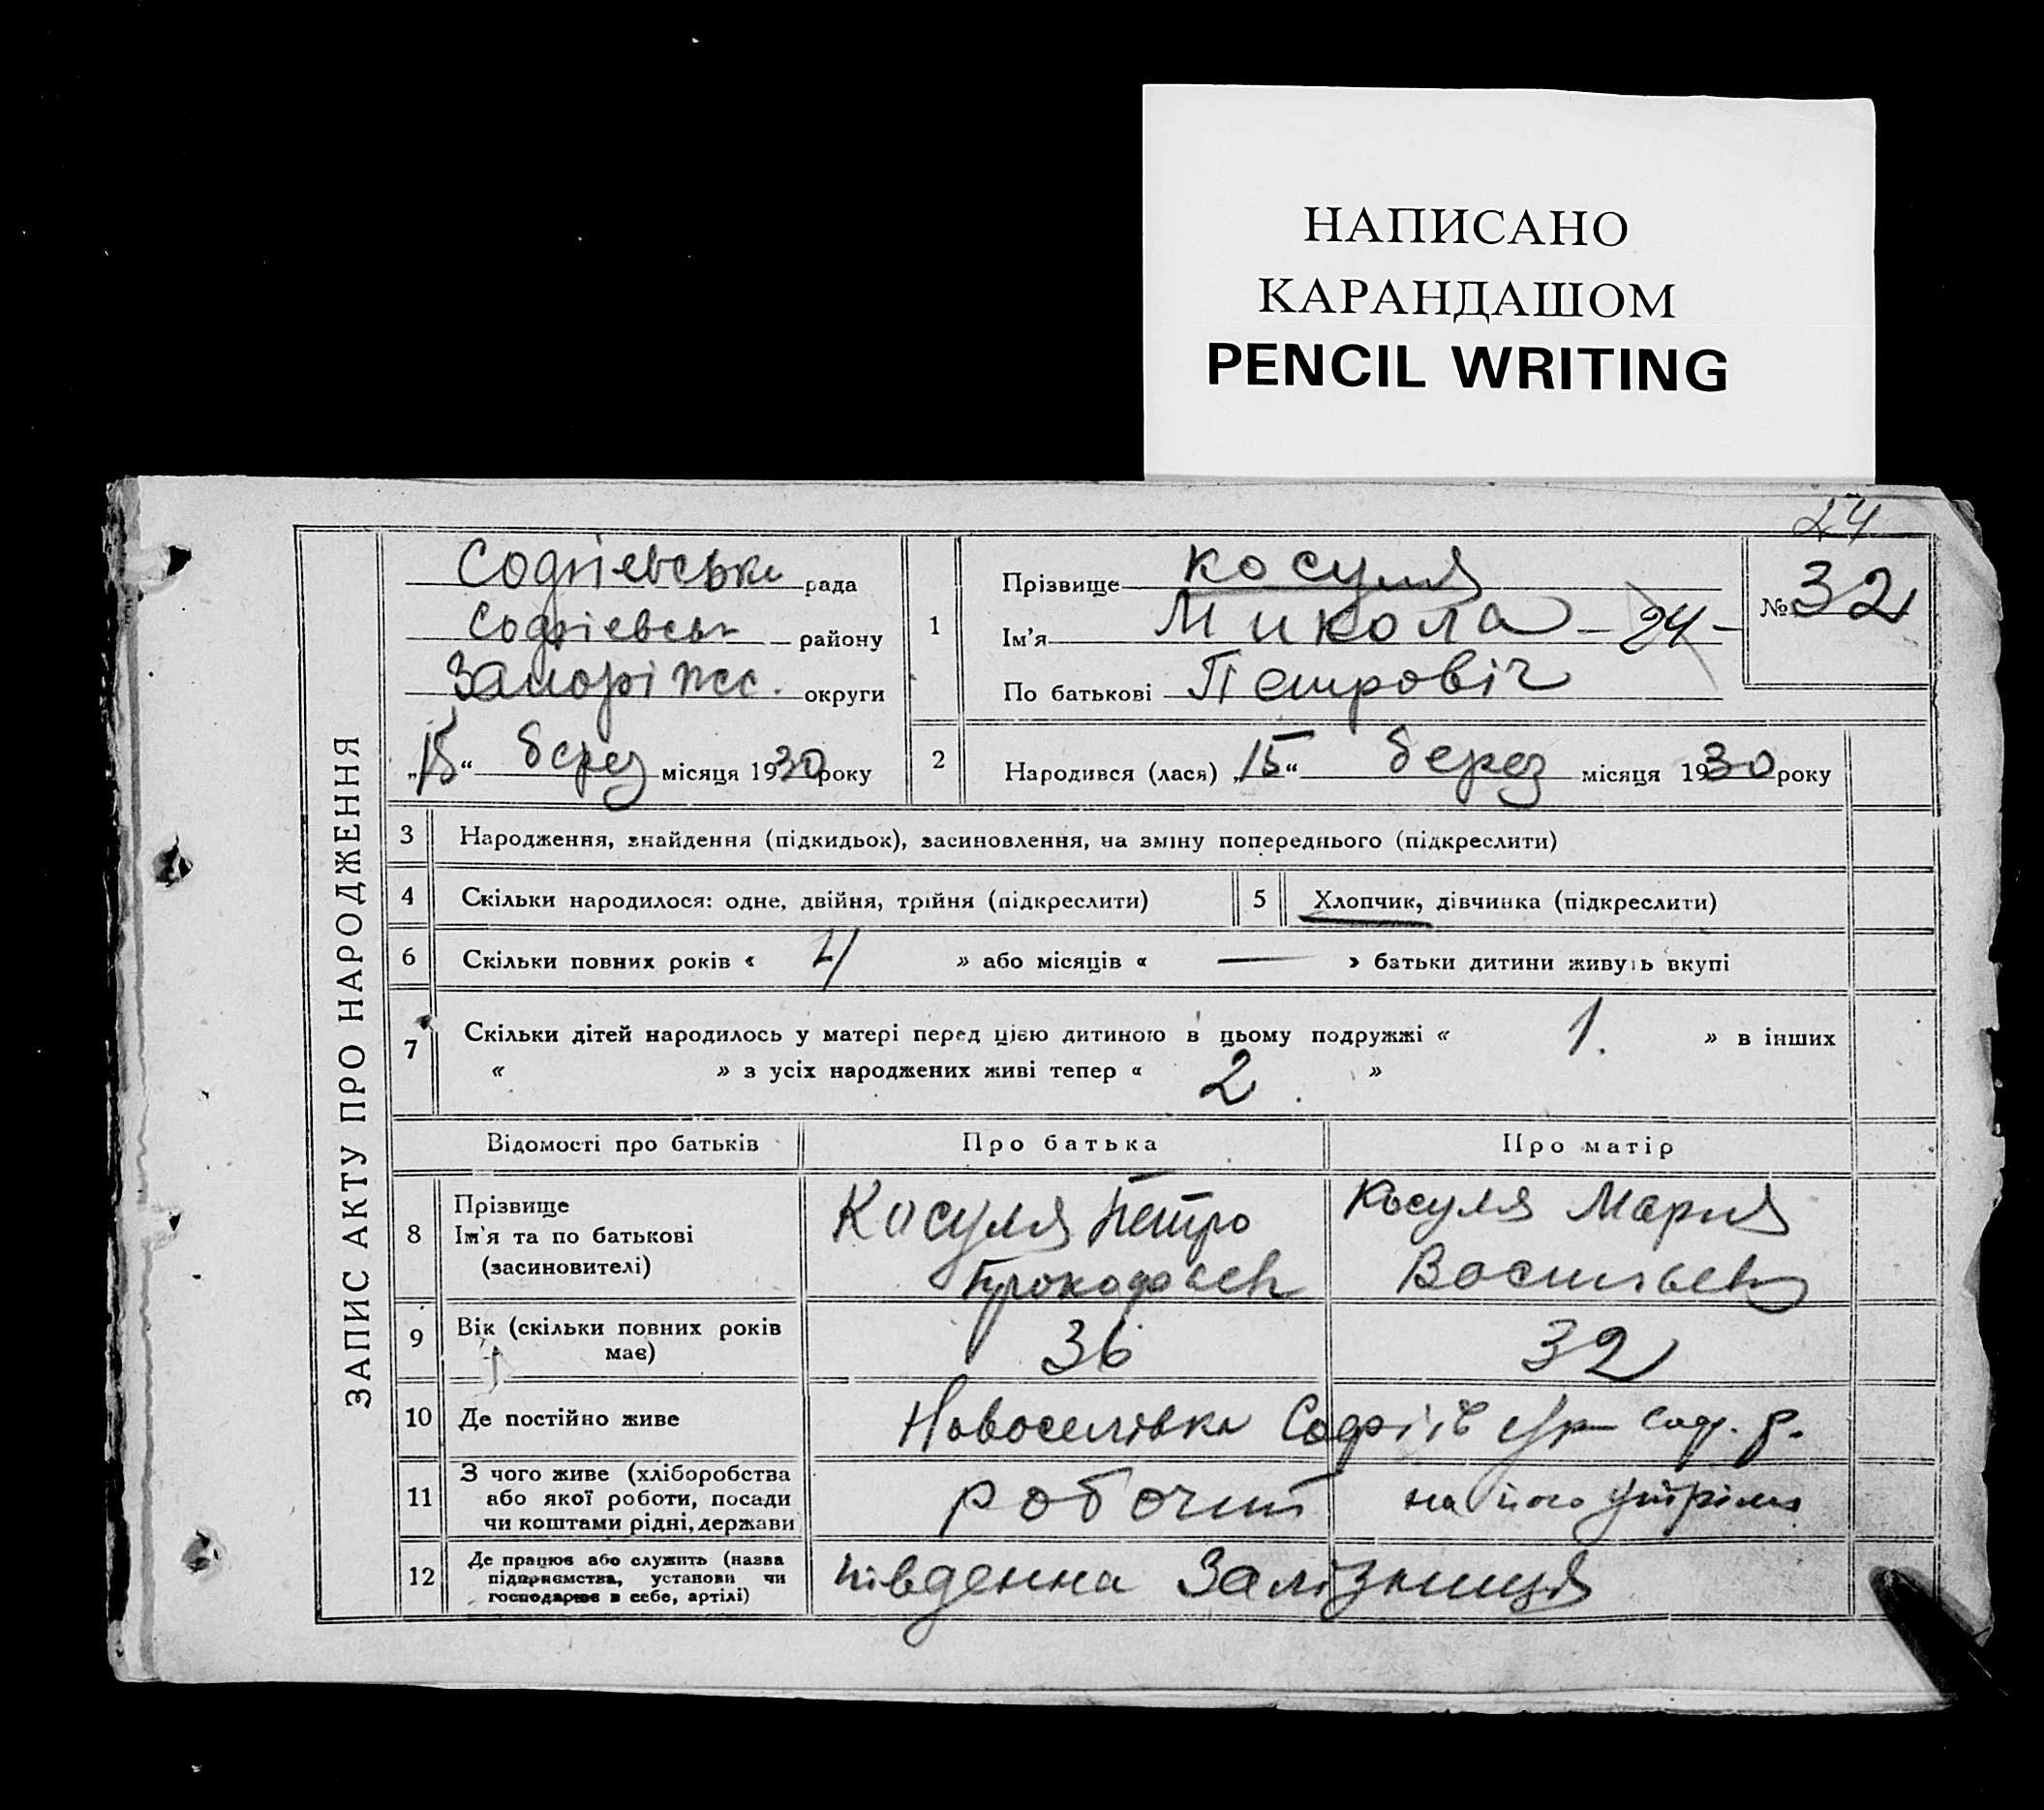 НАПИСАНО
КАРАНДАШОМ
PENCIL WRITING
24
ЗАПИС АКТУ ПРО НАРОДЖЕННЯ
Софіевська рада
Софіевськ району
Запоріжс. округи
„15“ берез місяця 1930 року
1
Прізвище Косуля
Ім'я Микола — 24 —
По батькові Петровіч
№ 32
2 Народився (лася) „15“ берез місяця 1930 року
3 Народження, знайдення (підкидьок), засиновлення, на зміну попереднього (підкреслити)
4 Скільки народилося: одне, двійня, трійня (підкреслити) 5 Хлопчик, дівчинка (підкреслити)
6 Скільки повних років « 4 » або місяців « — » батьки дитини живуть вкупі
7 Скільки дітей народилось у матері перед цією дитиною в цьому подружжі « 1. » в інших
« » з усіх народжених живі тепер « 2. »
Відомості про батьків Про батька Про матір
8 Прізвище
Ім'я та по батькові
(засиновителі)
Косуля Петро
Прокофьев
Косуля Мария
Васильев
9 Вік (скільки повних років
має)
36 32
10 Де постійно живе Новоселівка Софіїв Соф. р.
11 З чого живе (хліборобства
або якої роботи, посади
чи коштами рідні, держави
робочий на його утрімл
12 Де працює або служить (назва
підприємства, установи чи
господарює в себе, артілі)
південна Залізниця